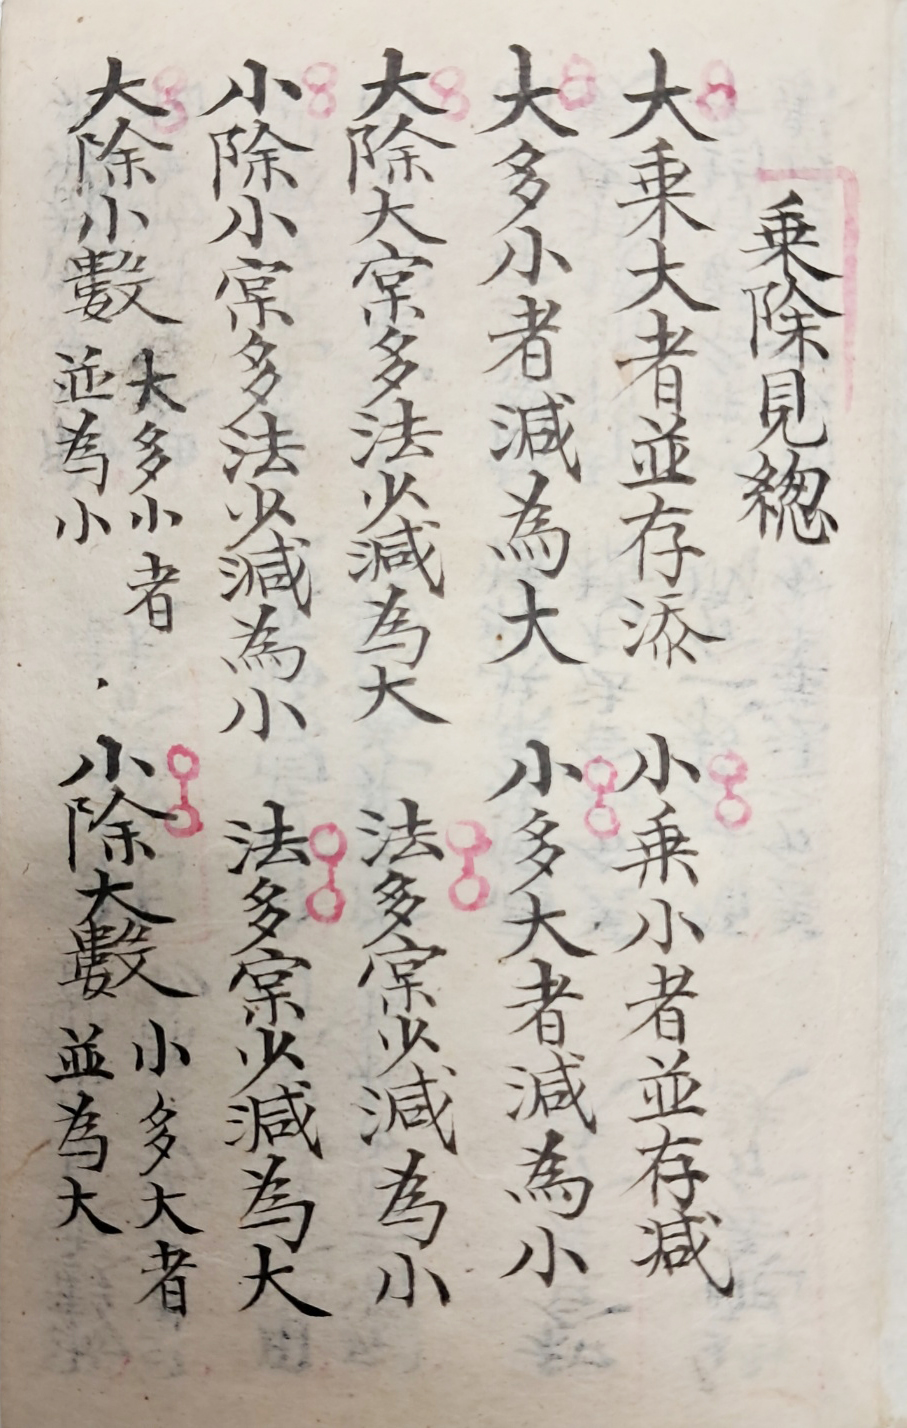 乗除見總
大乗大者並存添
小乗小者並存减
大多小者减為大
小多大者减為小
大除大宲多法少减為大
法多宲少减為小
小除小宲多法少减為小
法多宲少减為大
大除小數
大多小者
並為小
小除大數
小多大者
並為大